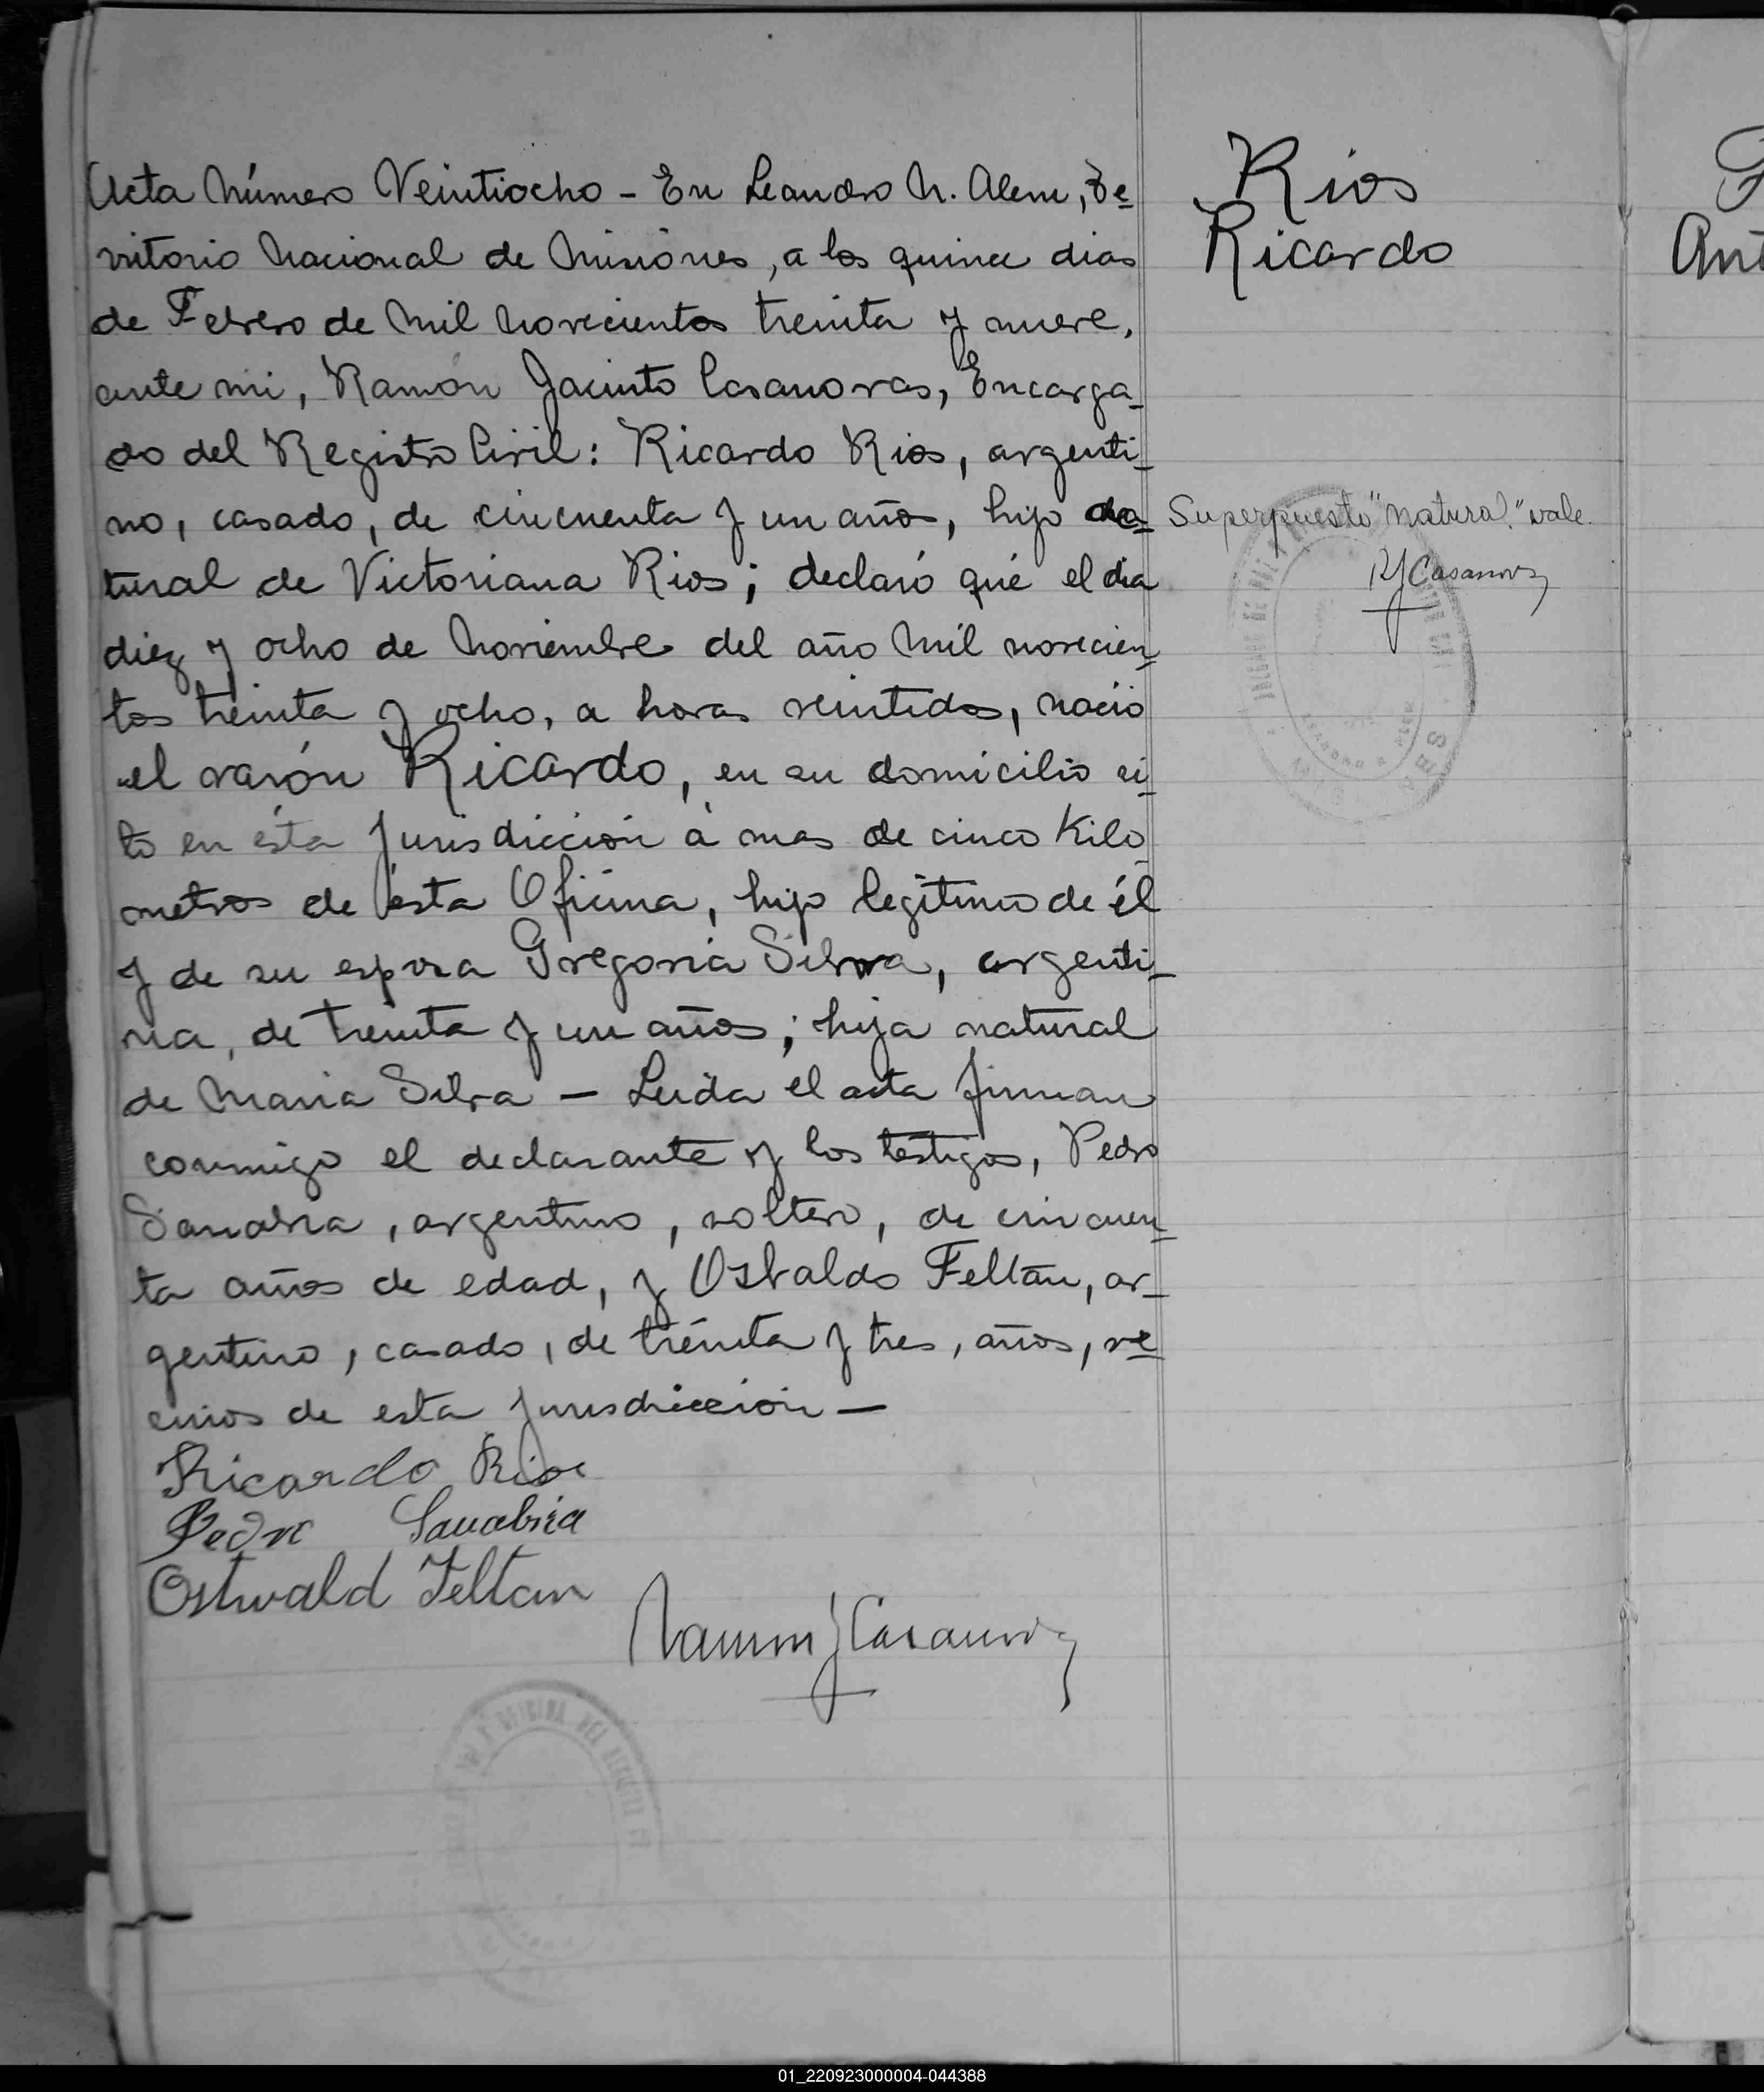 Acta Número Veintiocho - En Leandro N. Alem, Te
rritorio Nacional de Misiones, a los quince dias
de Febrero de Mil Novecientos treinta y nueve,
ante mi, Ramón Jacinto Casanovas, Encarga-
do del Registro Civil: Ricardo Rios, argenti-
no, casado, de cincuenta y un años, hijo na-
tural de Victoriana Rios; declaró qué el dia
diez y ocho de Noviembre del año Mil novecien-
tos treinta y ocho, a horas veintidos, nació
el varón Ricardo, en su domicilio si-
to en ésta Jurisdicción á mas de cinco Kiló
metros de ésta Oficina, hijo legítimo de él
y de su esposa Gregoria Silva, argenti-
na, de treinta y un años; hija natural
de Maria Silva - Leida el acta firman
conmigo el declarante y los testigos, Pedro
Sanabria, argentino, soltero, de cincuen-
ta años de edad, y Osvaldo Feltan, ar-
gentino, casado, de treinta y tres, años, ve
cinos de esta Jurisdicción -
Ricardo Rios
Pedro Sanabria
Ostwald Feltan
Ramon J Casanovas
Rios
Ricardo
Superpuesto "natural" vale.
RJ Casanovas
Ant
01_220923000004-044388